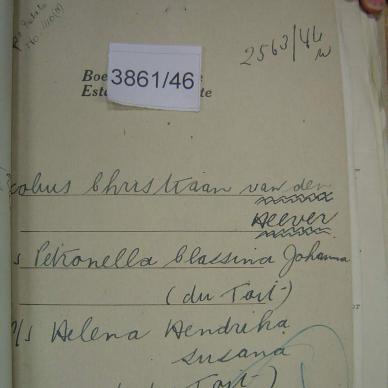 2563/46
Boe
3861/46
Este te
cobus Christiaan van den
Heever
s Petronella Classina Johanna
(du Toit)
p/s Helena Hendrika
Susana
Toit)